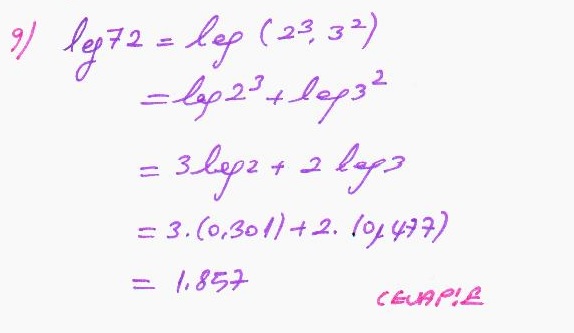 9) log72 = log (2³. 3²)
= log2³ + log3²
= 3log2 + 2 log3
= 3.(0,301)+2. (0,477)
= 1.857
CEVAP:E